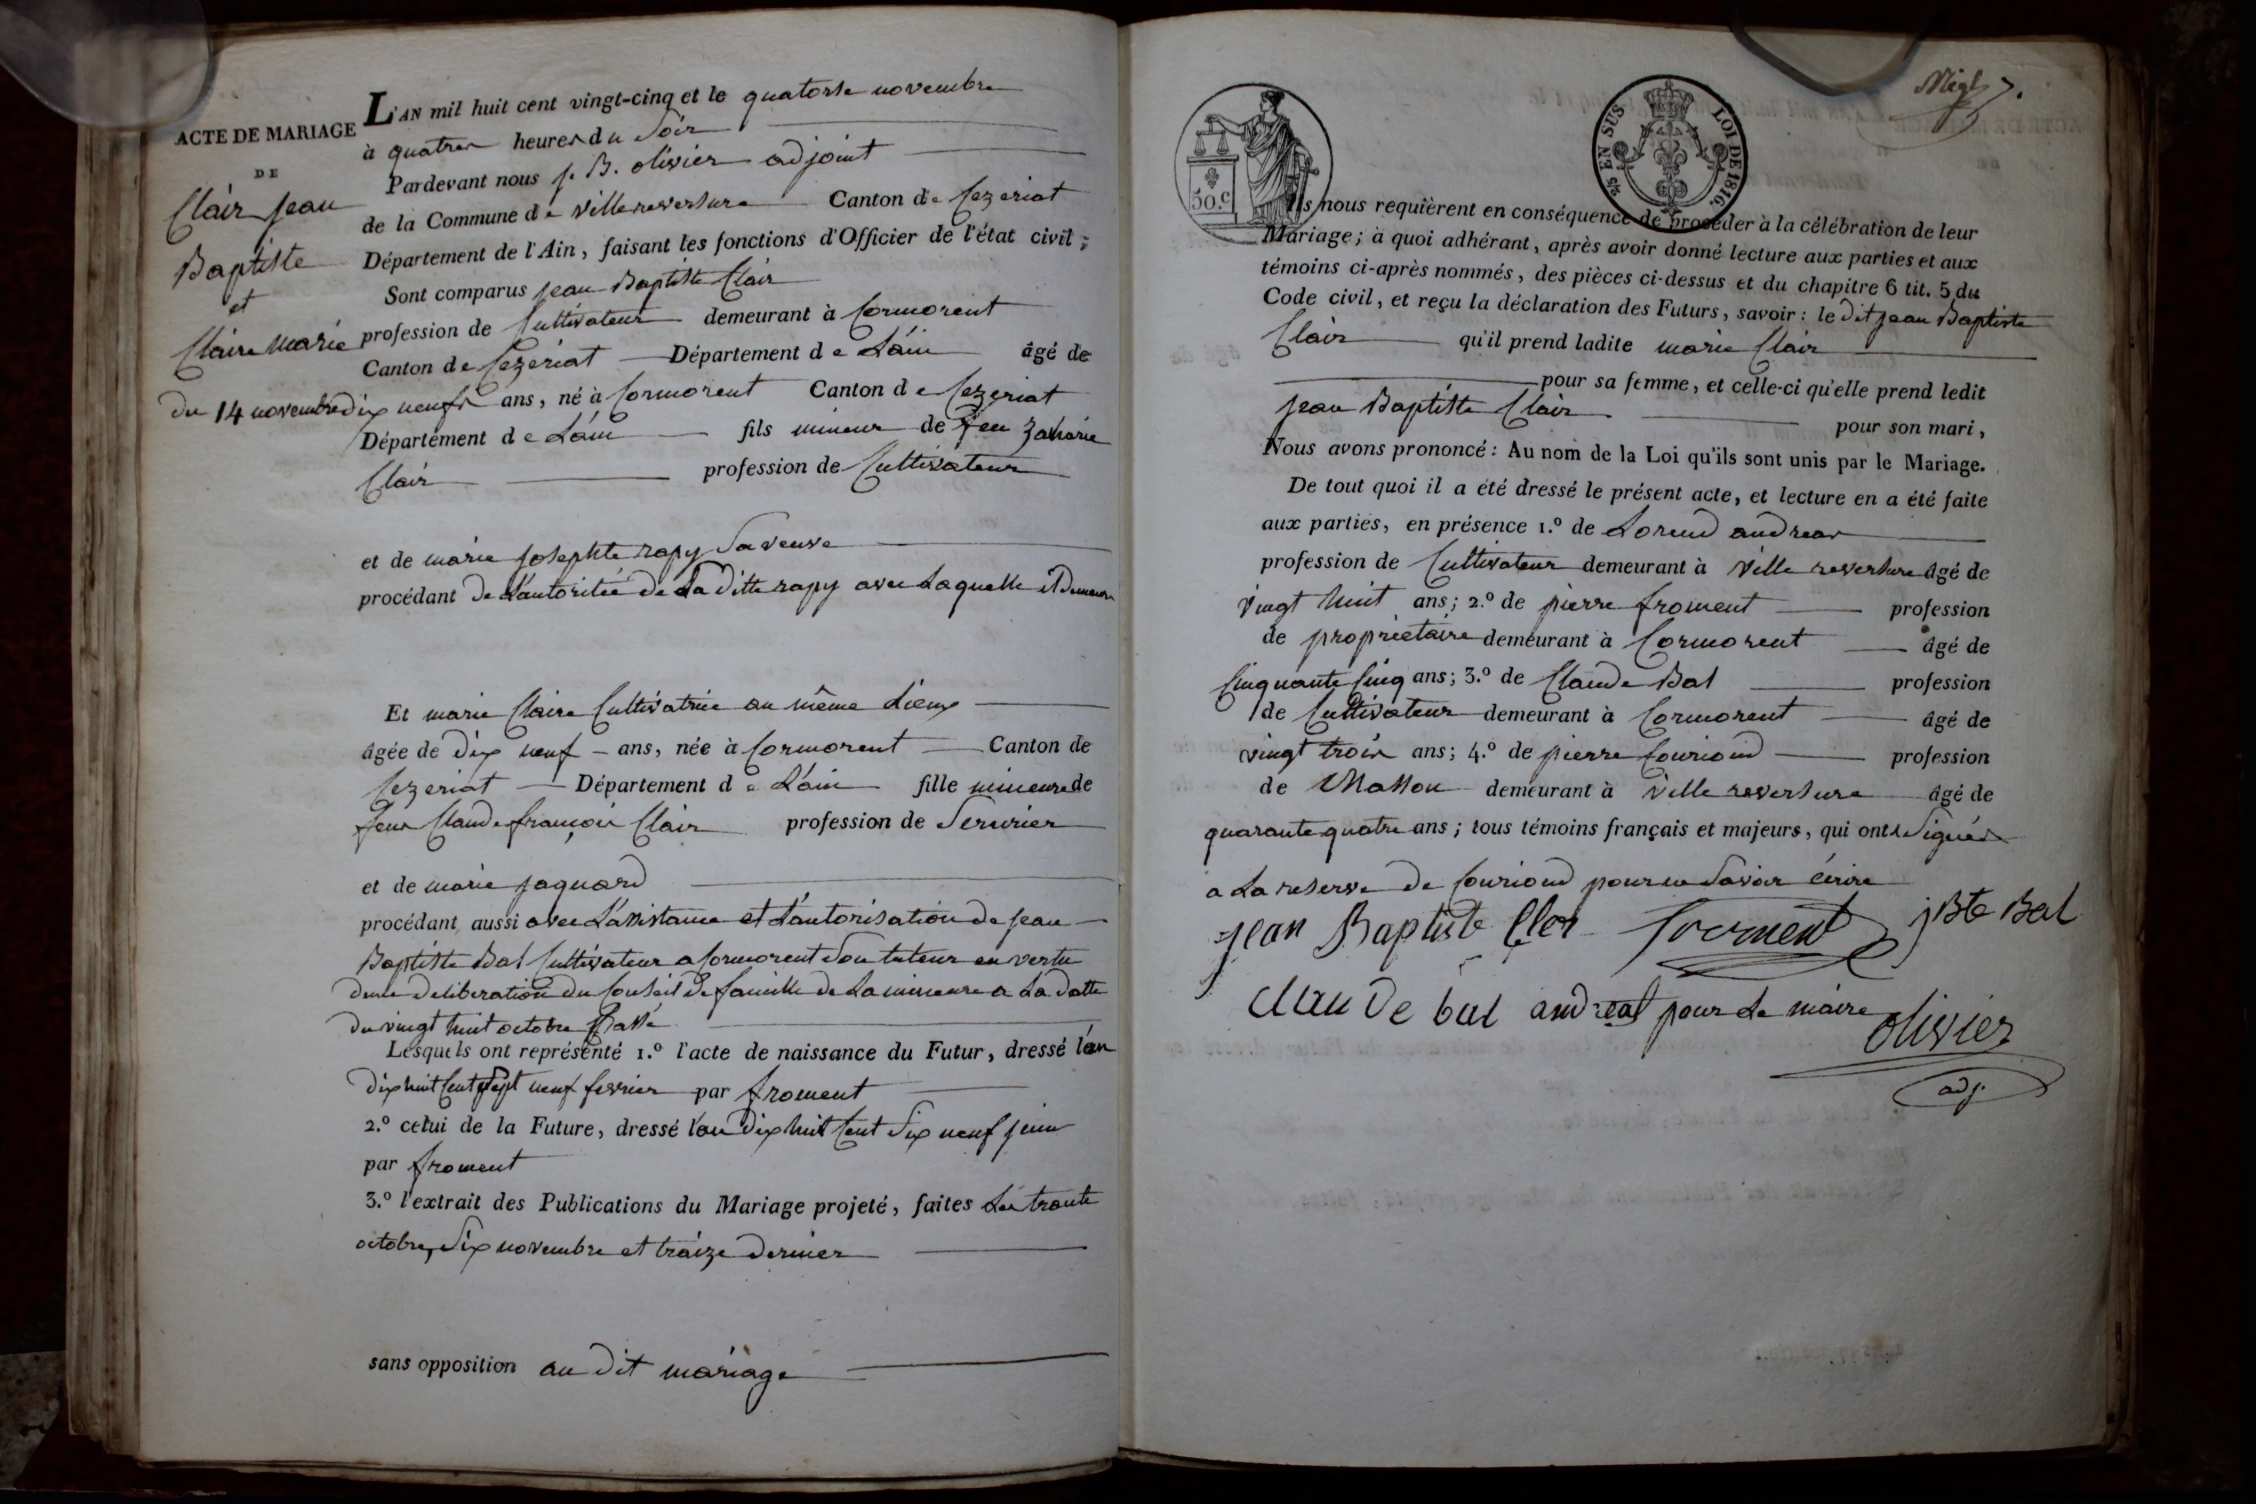 ACTE DE MARIAGE
DE
Clair Jean
Baptiste
et
Claire marie
du 14 novembre
L'AN mil huit cent vingt-cinq et le quatorse novembre
à quatres heures du Soir
Pardevant nous J. B. olivier adjoint
de la Commune de villereversure Canton de Cezeriat
Département de l'Ain, faisant les fonctions d'Officier de l'état civil;
Sont comparus jean Baptiste Clair
profession de Cultivateur demeurant à Cormorent
Canton de Cezeriat Département de L'ain âgé de
dix neufs ans, né à Cormorent Canton de Cezeriat
Département de L'ain fils mineur de feu Zaharie
Clair profession de Cultivateur
et de marie josephte rapy Sa veuve
procédant de L'autoritée de La ditte rapy avec Laquelle il demeure
Et marie Claire Cultivatrice au même Lieux
âgée de dix neuf ans, née à Cormorent Canton de
Cezeriat Département de L'ain fille mineure de
feux Claude françois Clair profession de Serurier
et de marie jaquard
procédant aussi avec L'assistance et L'autorisation de jean
Baptiste Bal Cultivateur a Cormorent Son tuteur en vertu
dune deliberation du Conseil de famille de La mineure a La datte
du vingt huit octobre Passé
Lesquels ont représenté 1.º l'acte de naissance du Futur, dressé l'an
dix huit Cent Sept neuf fevrier par froment
2.º celui de la Future, dressé l'an dix huit Cent Six neuf juin
par froment
3.º l'extrait des Publications du Mariage projeté, faites Les trante
octobre, Six novembre et traize dernier
sans opposition au dit mariage
50.C
25 EN SUS LOI DE 1816.
7.
Ils nous requièrent en conséquence de procéder à la célébration de leur
Mariage; à quoi adhérant, après avoir donné lecture aux parties et aux
témoins ci-après nommés, des pièces ci-dessus et du chapitre 6 tit. 5 du
Code civil, et reçu la déclaration des Futurs, savoir: le dit jean Baptiste
Clair qu'il prend ladite marie Clair
pour sa femme, et celle-ci qu'elle prend ledit
jean Baptiste Clair
pour son mari,
Nous avons prononcé: Au nom de la Loi qu'ils sont unis par le Mariage.
De tout quoi il a été dressé le présent acte, et lecture en a été faite
aux parties, en présence 1.º de Lorend andreas
profession de Cultivateur demeurant à ville reversure âgé de
vingt huit ans; 2.º de pierre froment profession
de propriétaire demeurant à Cormorent âgé de
Cinquante Cinq ans; 3.º de Claude Bal profession
de Cultivateur demeurant à Cormorent âgé de
vingt trois ans; 4.º de pierre Couriond profession
de Masson demeurant à ville reversure âgé de
quarante quatre ans; tous témoins français et majeurs, qui ont Signés
a La reserve de Couriond pour ne Savoir écrire
jean Baptiste Cler froment jBte Bal
Clau De bal andreas pour Le maire
olivier
adj.